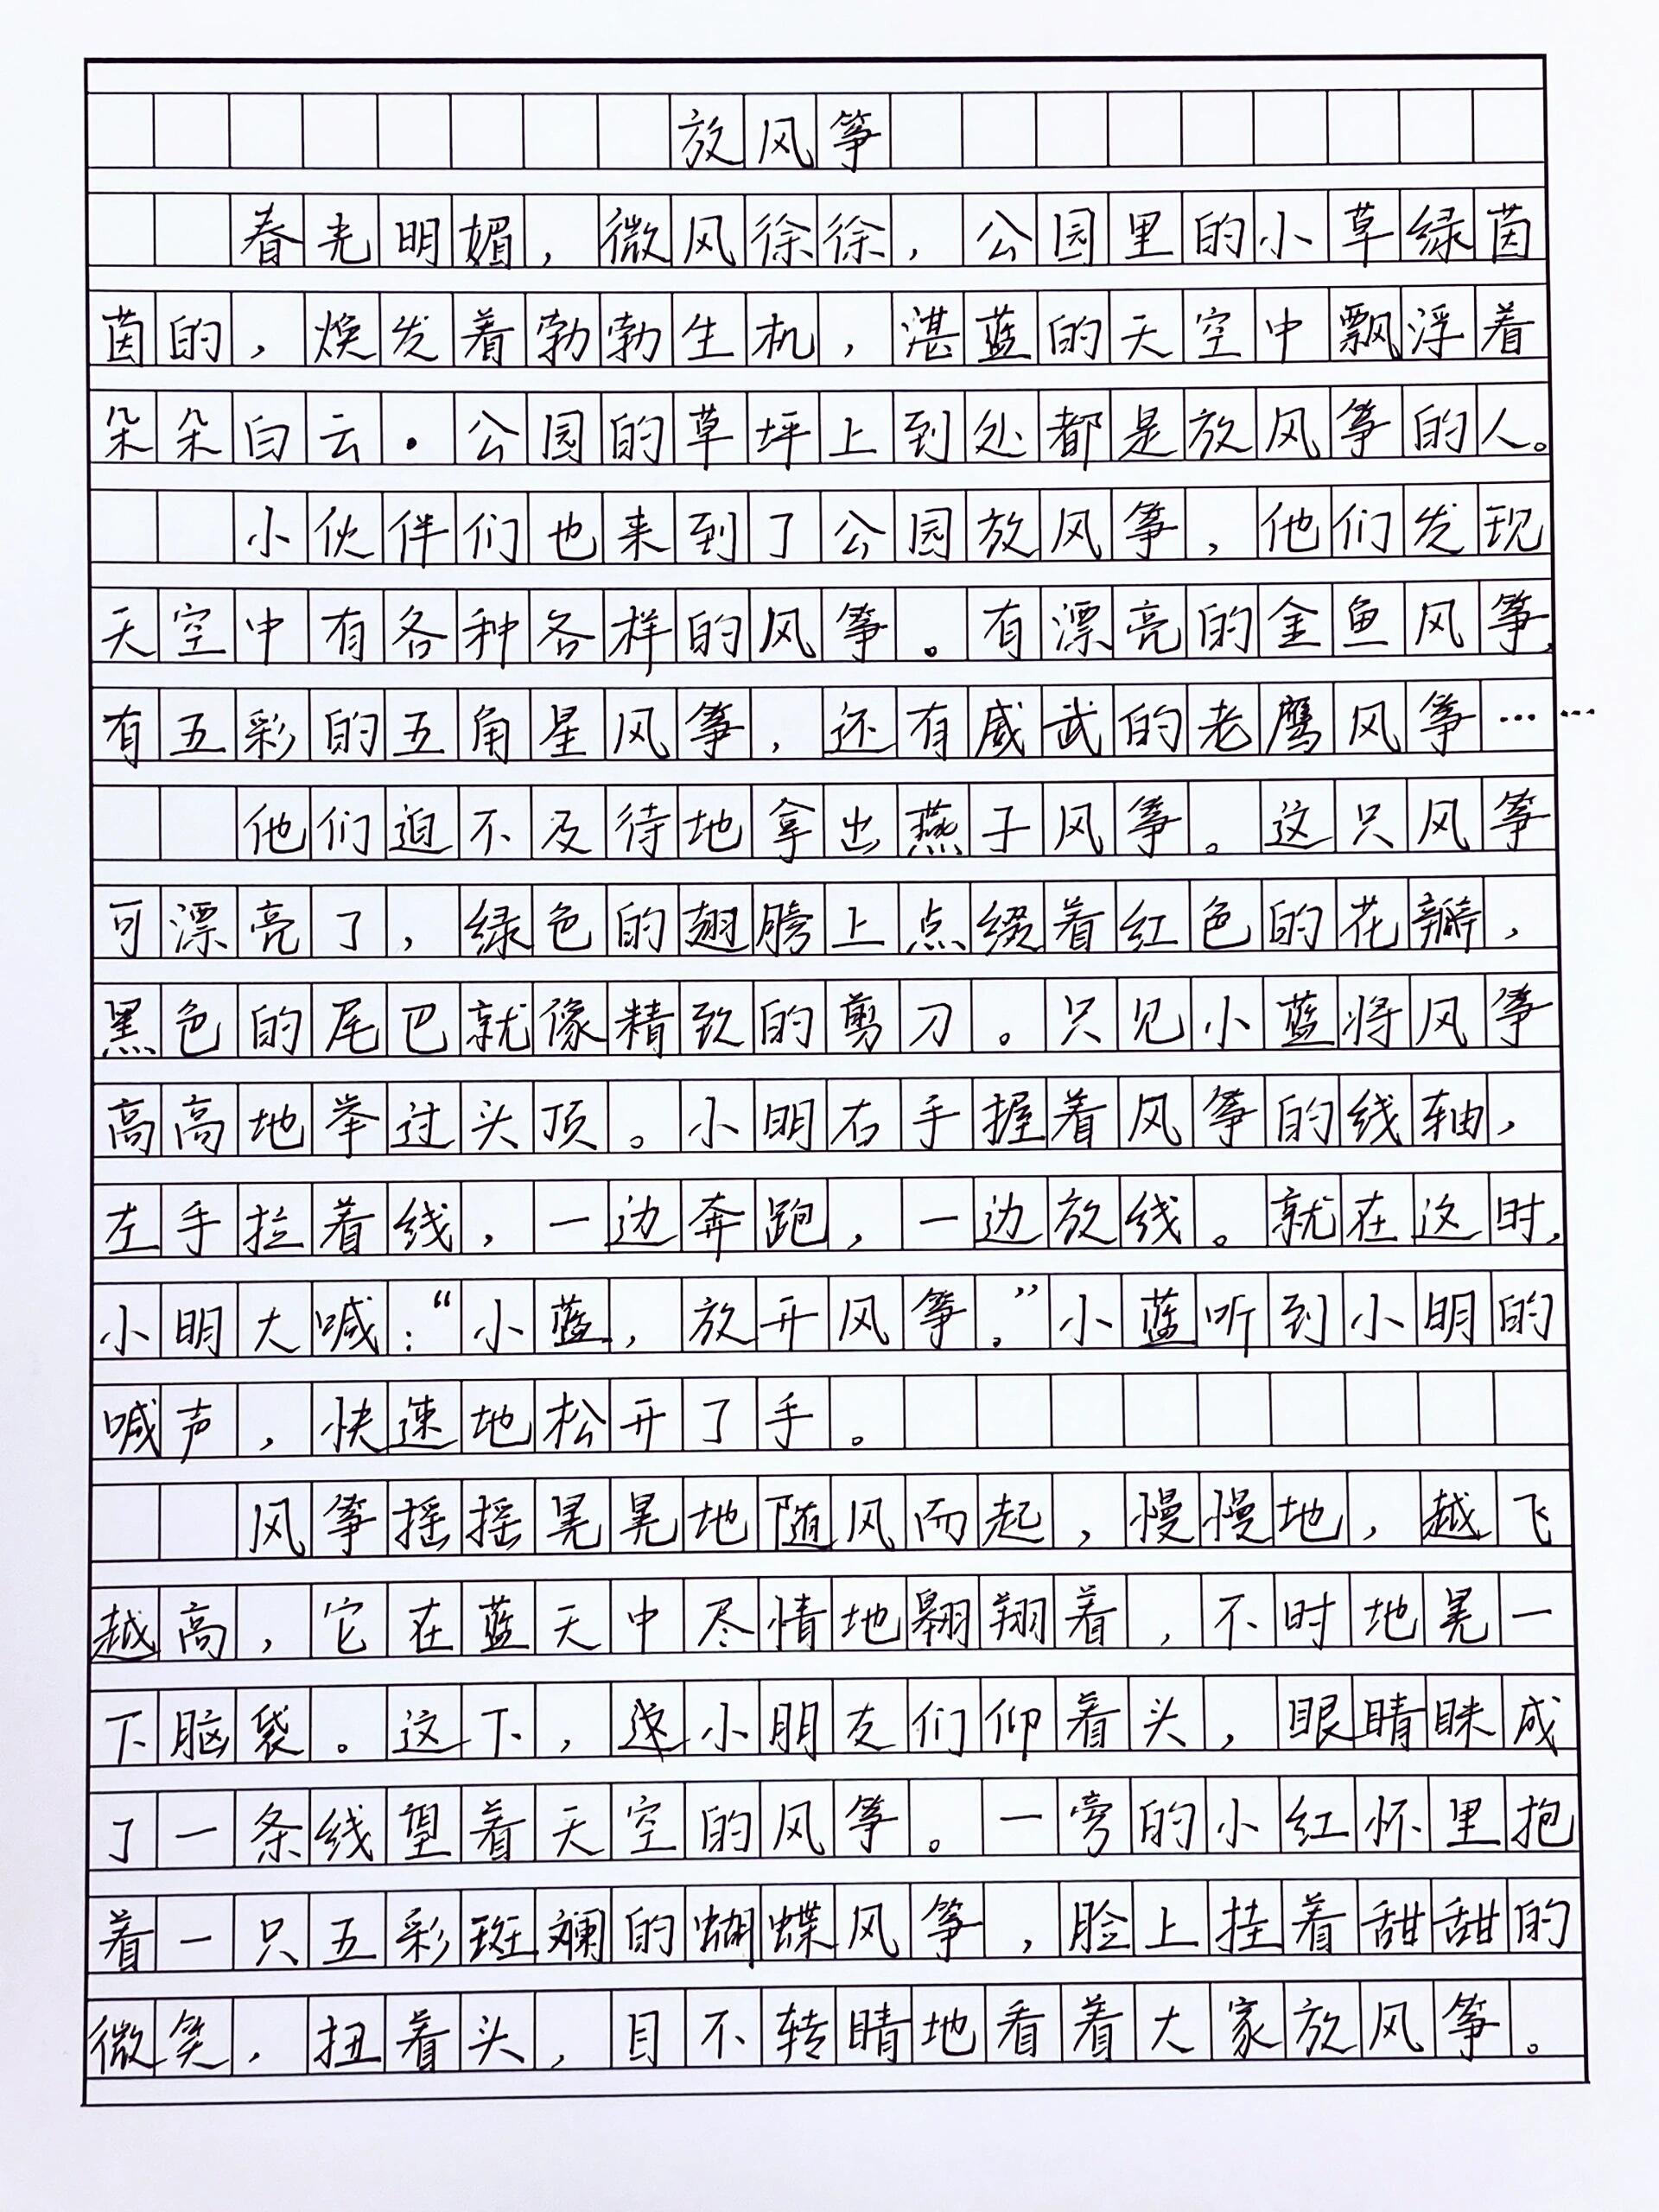 放风筝
春光明媚，微风徐徐，公园里的小草绿茵
茵的，焕发着勃勃生机，湛蓝的天空中飘浮着
朵朵白云．公园的草坪上到处都是放风筝的人。
小伙伴们也来到了公园放风筝，他们发现
天空中有各种各样的风筝。有漂亮的金鱼风筝，
有五彩的五角星风筝，还有威武的老鹰风筝……
他们迫不及待地拿出燕子风筝。这只风筝
可漂亮了，绿色的翅膀上点缀着红色的花瓣，
黑色的尾巴就像精致的剪刀。只见小蓝将风筝
高高地举过头顶。小明右手握着风筝的线轴，
左手拉着线，一边奔跑，一边放线。就在这时，
小明大喊：“小蓝，放开风筝．”小蓝听到小明的
喊声，快速地松开了手。
风筝摇摇晃晃地随风而起，慢慢地，越飞
越高，它在蓝天中尽情地翱翔着，不时地晃一
下脑袋。这下，小朋友们仰着头，眼睛眯成
了一条线望着天空的风筝。一旁的小红怀里抱
着一只五彩斑斓的蝴蝶风筝，脸上挂着甜甜的
微笑，扭着头，目不转睛地看着大家放风筝。